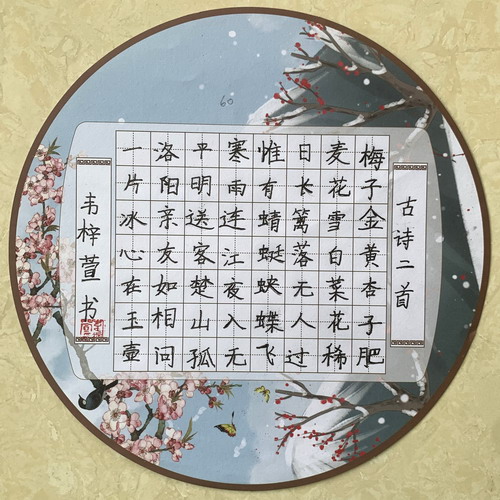 60
古诗二首
梅子金黄杏子肥
麦花雪白菜花稀
日长篱落无人过
惟有蜻蜓蛱蝶飞
寒雨连江夜入无
平明送客楚山孤
洛阳亲友如相问
一片冰心在玉壶
韦梓萱书